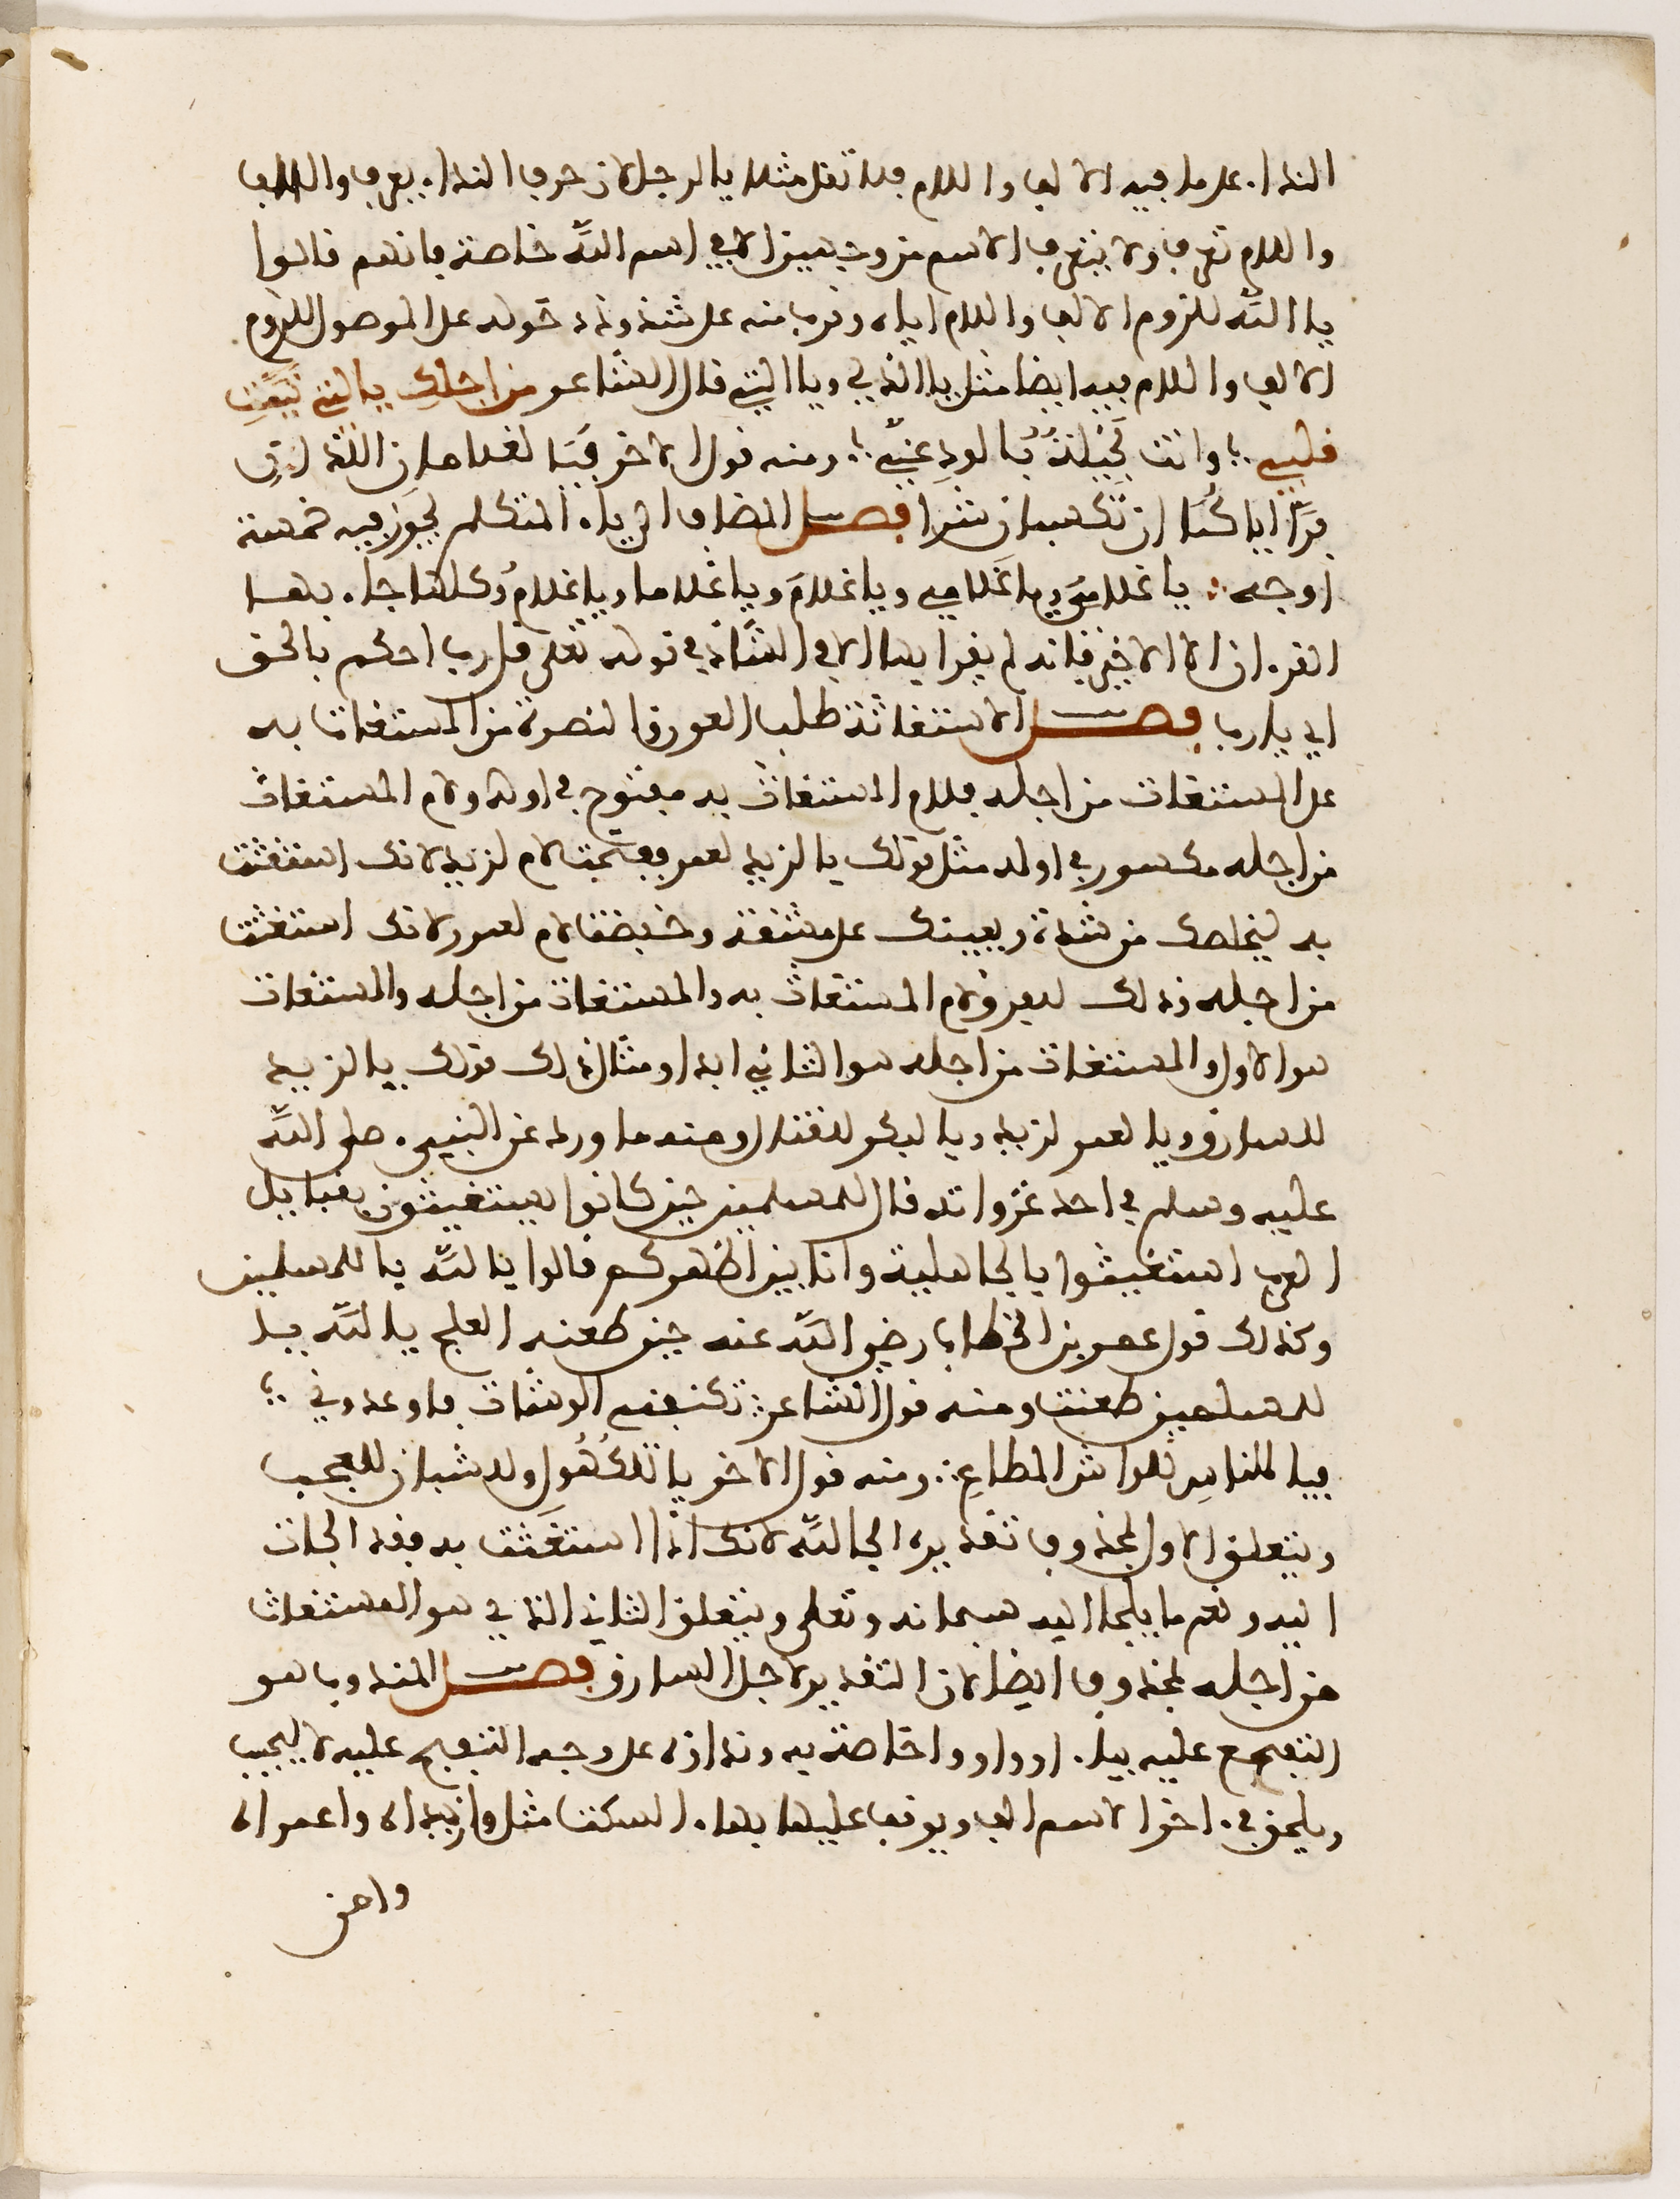 النداء على ما فيه الالف واللام فلا تقل مثلا يا الرجل لان حرف النداء يعرف والالف
واللام تعرف ولا يتعرف الاسم من وجهين الا في اسم الله خاصة فانهم قالوا
يا الله للزوم الالف واللام اياه وقرب منه على شذوذ دخوله على الموصول للزوم
الالف واللام فيه ايضا مثل يا الذي ويا التي قال الشاعر من اجلكِ يا التي تيَّمتِ
قلبي ؛ وانت بَخيلةٌ بالودِ عَنِّي ؛ ومنه قول الاخر فيَا لغلامان اللذانِ
فَرَّا اياكُمَا ان تكسبان شرا فصل المضاف الى ياء المتكلم يجوز فيه خمسة
اوجه : يا غلامىَ ويا غلامي ويا غلامَ ويا غلاما ويا غلامُ وكلها جاء بها
القرءان الا الاخير فانه لم يقرا بها الا في الشاذ في قوله تعلى قل رب احكم بالحق
اي يا رب فصل الاستغاثة طلب العون والنصرة من المستغاث به
على المستغاث من اجله فلام المستغاث به مفتوح في اوله ولام المستغاث
من اجله مكسور في اوله مثل قولك يا لزيد لعمر ففتحت لام لزيد لانك استغثت
به ليخلصك من شدة ويعينك على مشقة وخفضت لام لعمر لانك استغثت
من اجله وذلك ليفرق لام المستغاث به والمستغاث من اجله والمستغاث
هو الاول والمستغاث من اجله هو الثاني ابدا ومثال ذلك قولك يا لزيد
للسارق ويا لعمر لزيد ويا لبكر لقتال ومنه ما ورد عن النبيء صلى الله
عليه وسلم في احد غزواته قال للمسلمين حين كانوا يستغيثون بقبايل
العرب استغيثوا يا لجاهلية وانا بين اظهركم قالوا يا لله يا للمسلمين
وكذلك قول عمر بن الخطاب رضي الله عنه حين طعنه العلج يا لله يا
للمسلمين طعنت ومنه قول الشاعر : تكنفني الوشات فاوعدوني ؛
فيا للناسِ للواش المطاعِ : ومنه قول الاخر يا للكُهُولِ وللشبان للعجب
ويتعلق الاول بمحذوف تقديره الجا لله لانك اذا استغثت به فقد الجات
اليه ونعم ما يلجا اليه سبحانه وتعلى ويتعلق الثاني الذي هو المستغاث
من اجله بمحذوف ايضا لان التقدير لاجل السارق فصل المندوب هو
التفجع عليه بيا او واو وا خاصة به ونداؤه على وجه التفجع عليه لا ليجيب
ويلحق في ءاخر الاسم الف ويوقف عليها بهاء السكت مثل وا زيداه وا عمراه
وا من